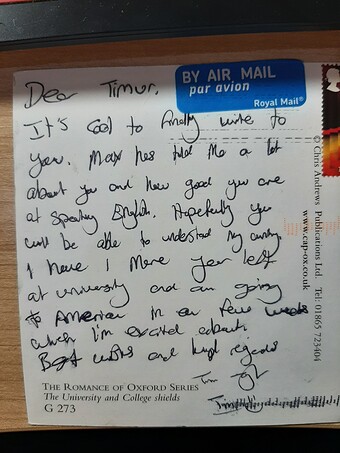 Dear Timur,
BY AIR MAIL
par avion
Royal Mail®
It's cool to finally write to
you. Max has told me a lot
about you and how good you are
at speaking English. Hopefully you
will be able to understand my
I have 1 more year left
at university and am going
to America in a few weeks
which I'm excited about.
Best wishes and kind regards
Tim
THE ROMANCE OF OXFORD SERIES
The University and College shields
G 273
© Chris Andrews Publications Ltd. Tel: 01865 723404
www.cap-ox.co.uk